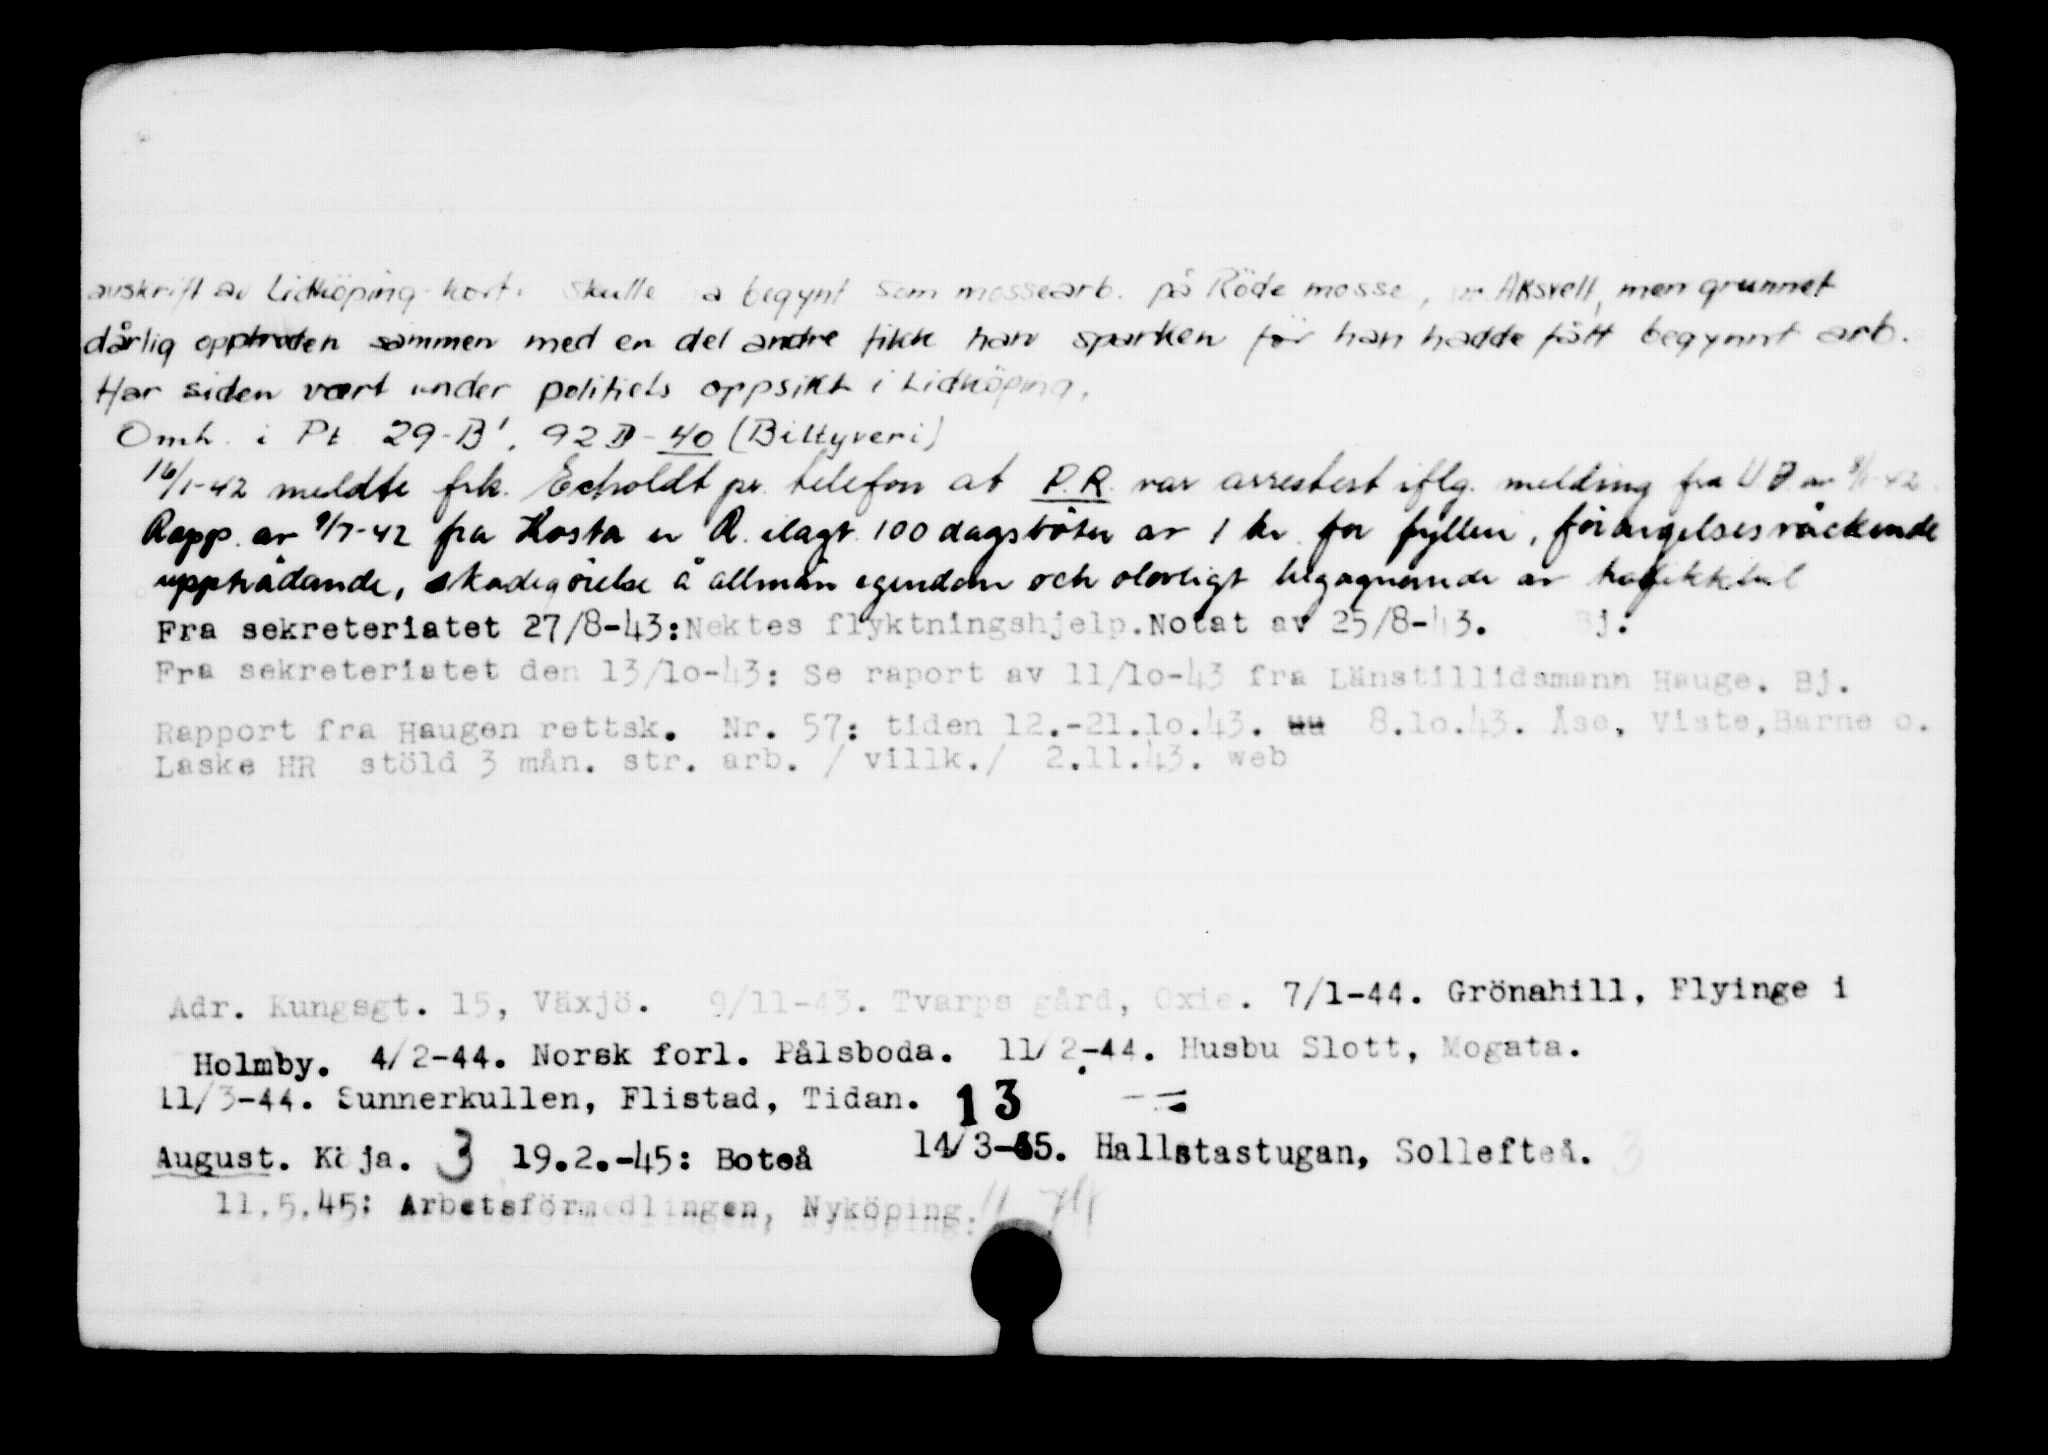 avskrift av Lidköping-kort. Skulle ha begynt som mossearb. på Röde mosse, pr. Aksvell, men grunnet
dårlig opptreden sammen med en del andre fikk han sparken før han hadde fått begynnt arb.
Har siden vært under politiets oppsikt i Lidköping.
Omh. i Pt. 29-B', 92 D-40 (Biltyveri)
16/1-42 meldte frk. Echoldt pr. telefon at P.R. var arrestert iflg. melding fra U.D av 8/1-42.
Rapp. av 9/7-42 fra Kosta er R. ilagt 100 dagsböter av 1 kr. for fylleri, förargelsesväckende
uppträdande, skadegörelse å allmän egendom och olovligt begagnende av
Fra sekreteriatet 27/8-43:Nektes flyktningshjelp.Notat av 25/8-43. Bj.
Fra sekreteriatet den 13/10-43: Se raport av 11/10-43 fra Länstillidsmann Hauge. Bj.
Rapport fra Haugen rettsk. Nr. 57: tiden 12.-21.10.43. uu 8.10.43. Åse, Viste,Barne o.
Laske HR stöld 3 mån. str. arb. / villk./ 2.11.43. web
Adr. Kungsgt. 15, Växjö. 9/11-43. Tvarps gård, Oxie. 7/1-44. Grönahill, Flyinge i
Holmby. 4/2-44. Norsk forl. Pålsboda. 11/2-44. Husbu Slott, Mogata.
11/3-44. Sunnerkullen, Flistad, Tidan. 13
August. Köja. 3 19.2.-45: Boteå 14/3-45. Hallstastugan, Sollefteå. 3
11.5.45: Arbetsförmedlingen, Nyköping.